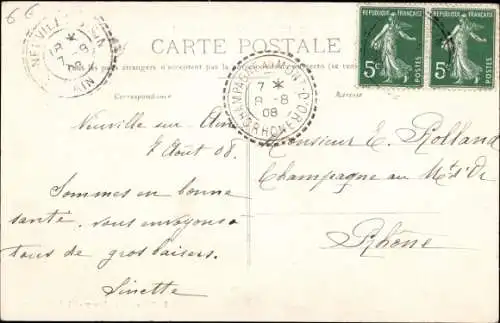 66
CARTE POSTALE
Tous les pays étrangers n'acceptent pas la correspondance
Correspondance
Adresse
NEUVILLE
AIN
7 8
08
CHAMPAGNE-AU-MONT-D'OR
7 *
8-8
08
RHONE
REPUBLIQUE FRANÇAISE
5c
POSTES
REPUBLIQUE FRANÇAISE
5c
POSTES
Neuville sur Ain
7 Août 08.
Sommes en bonne
santé, vous envoyons
tous de gros baisers.
Sinette
Monsieur E. Rolland
Champagne au Mt d'Or
Rhône